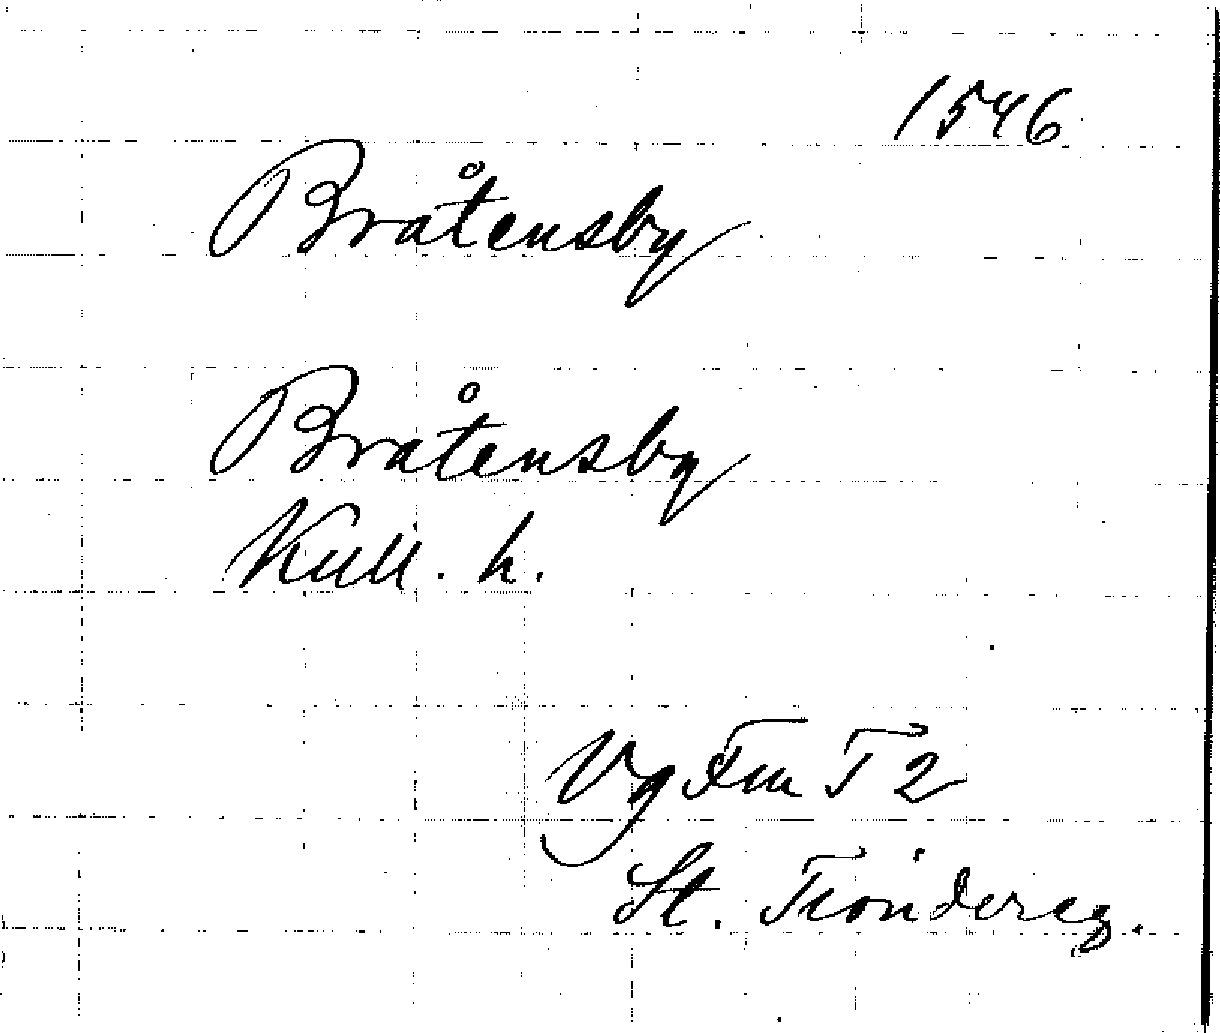 1546
Bråtensby
Bråtensby
Kull. h.
Vg Fru T 2
St. Tiondereg.